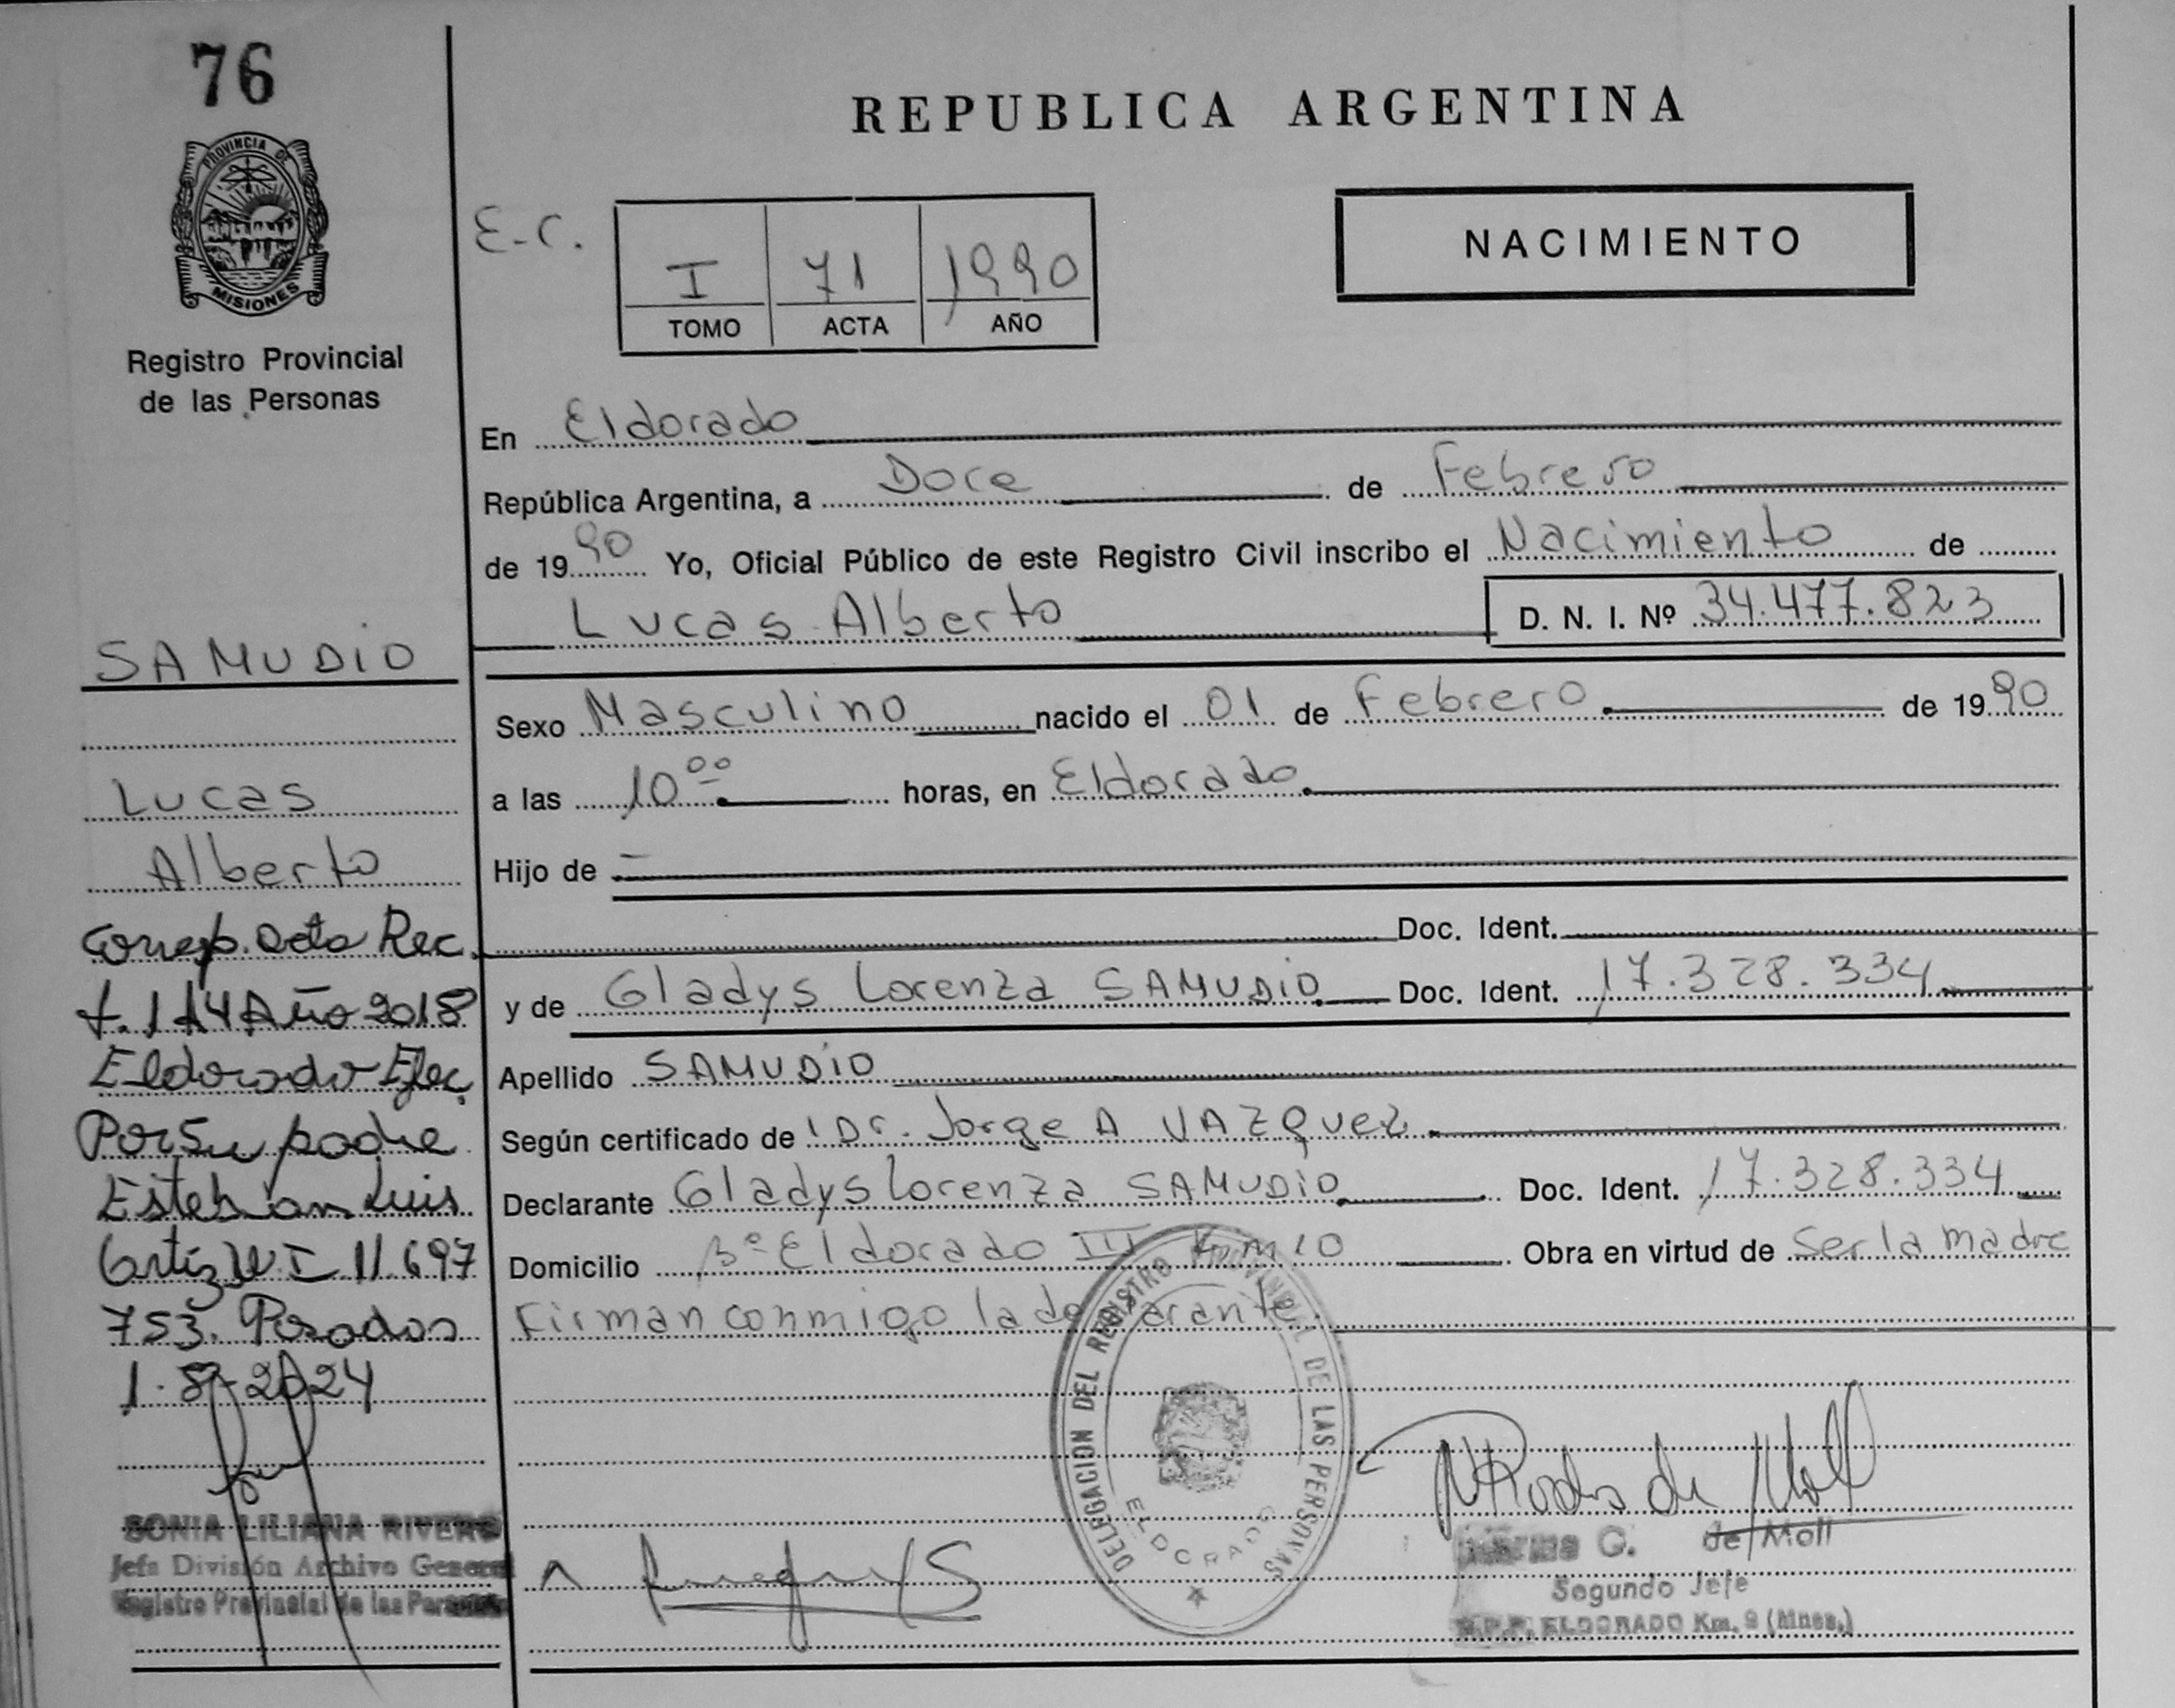 76
PROVINCIA DE
MISIONES
Registro Provincial
de las Personas
SAMUDIO
Lucas
Alberto
Corresp. acta Rec.
t. 1 A 4 Año 2018
Eldorado Efec.
Por Su padre
Esteban Luis
Ortiz D.N.I 11.697
753. Posadas
1-8-2024
SONIA LILIANA RIVERO
Jefa División Archivo General
Registro Provincial de las Personas
REPUBLICA ARGENTINA
E-C.
I 71 1990
TOMO ACTA AÑO
NACIMIENTO
En Eldorado
República Argentina, a Doce de Febrero
de 1990 Yo, Oficial Público de este Registro Civil inscribo el Nacimiento de
Lucas Alberto D. N. I. Nº 34.477.823
Sexo Masculino nacido el 01 de Febrero de 1990
a las 10 00 horas, en Eldorado
Hijo de
Doc. Ident.
y de Gladys Lorenza SAMUDIO Doc. Ident. 17.328.334
Apellido SAMUDIO
Según certificado de Dr. Jorge A VAZQuez
Declarante Gladys Lorenza SAMUDIO Doc. Ident. 17.328.334
Domicilio Bº Eldorado III Km 10 Obra en virtud de Ser la madre
Firman conmigo la declarante
DELEGACION DEL REGISTRO PROVINCIAL DE LAS PERSONAS
ELDORADO
G. de Moll
Segundo Jefe
R.P.P. ELDORADO Km. 9 (Mnes.)